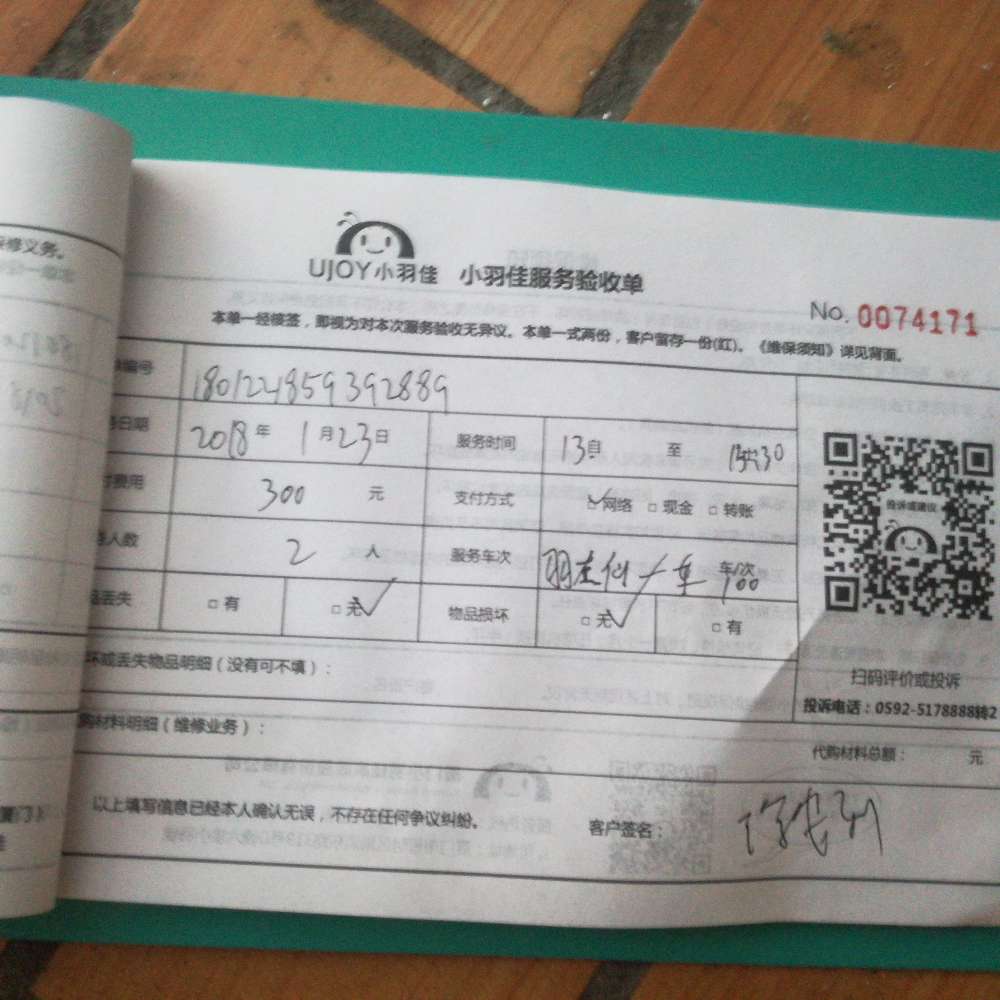 修义务。
UJOY小羽佳 小羽佳服务验收单
No. 0074171
本单一经接签，即视为对本次服务验收无异议。本单一式两份，客户留存一份(红)。《维保须知》详见背面。
编号 180124859392889
日期 2018年 1月23日 服务时间 13 至 30
费用 300 元 支付方式 ☑网络 □现金 □转账
人数 2 人 服务车次 车/次
丢失 □有 ☑无 物品损坏 ☑无 □有
投诉或建议
扫码评价或投诉
投诉电话：0592-5178888转2
坏或丢失物品明细（没有可不填）：
购材料明细（维修业务）：
代购材料总额： 元
以上填写信息已经本人确认无误，不存在任何争议纠纷。 客户签名：